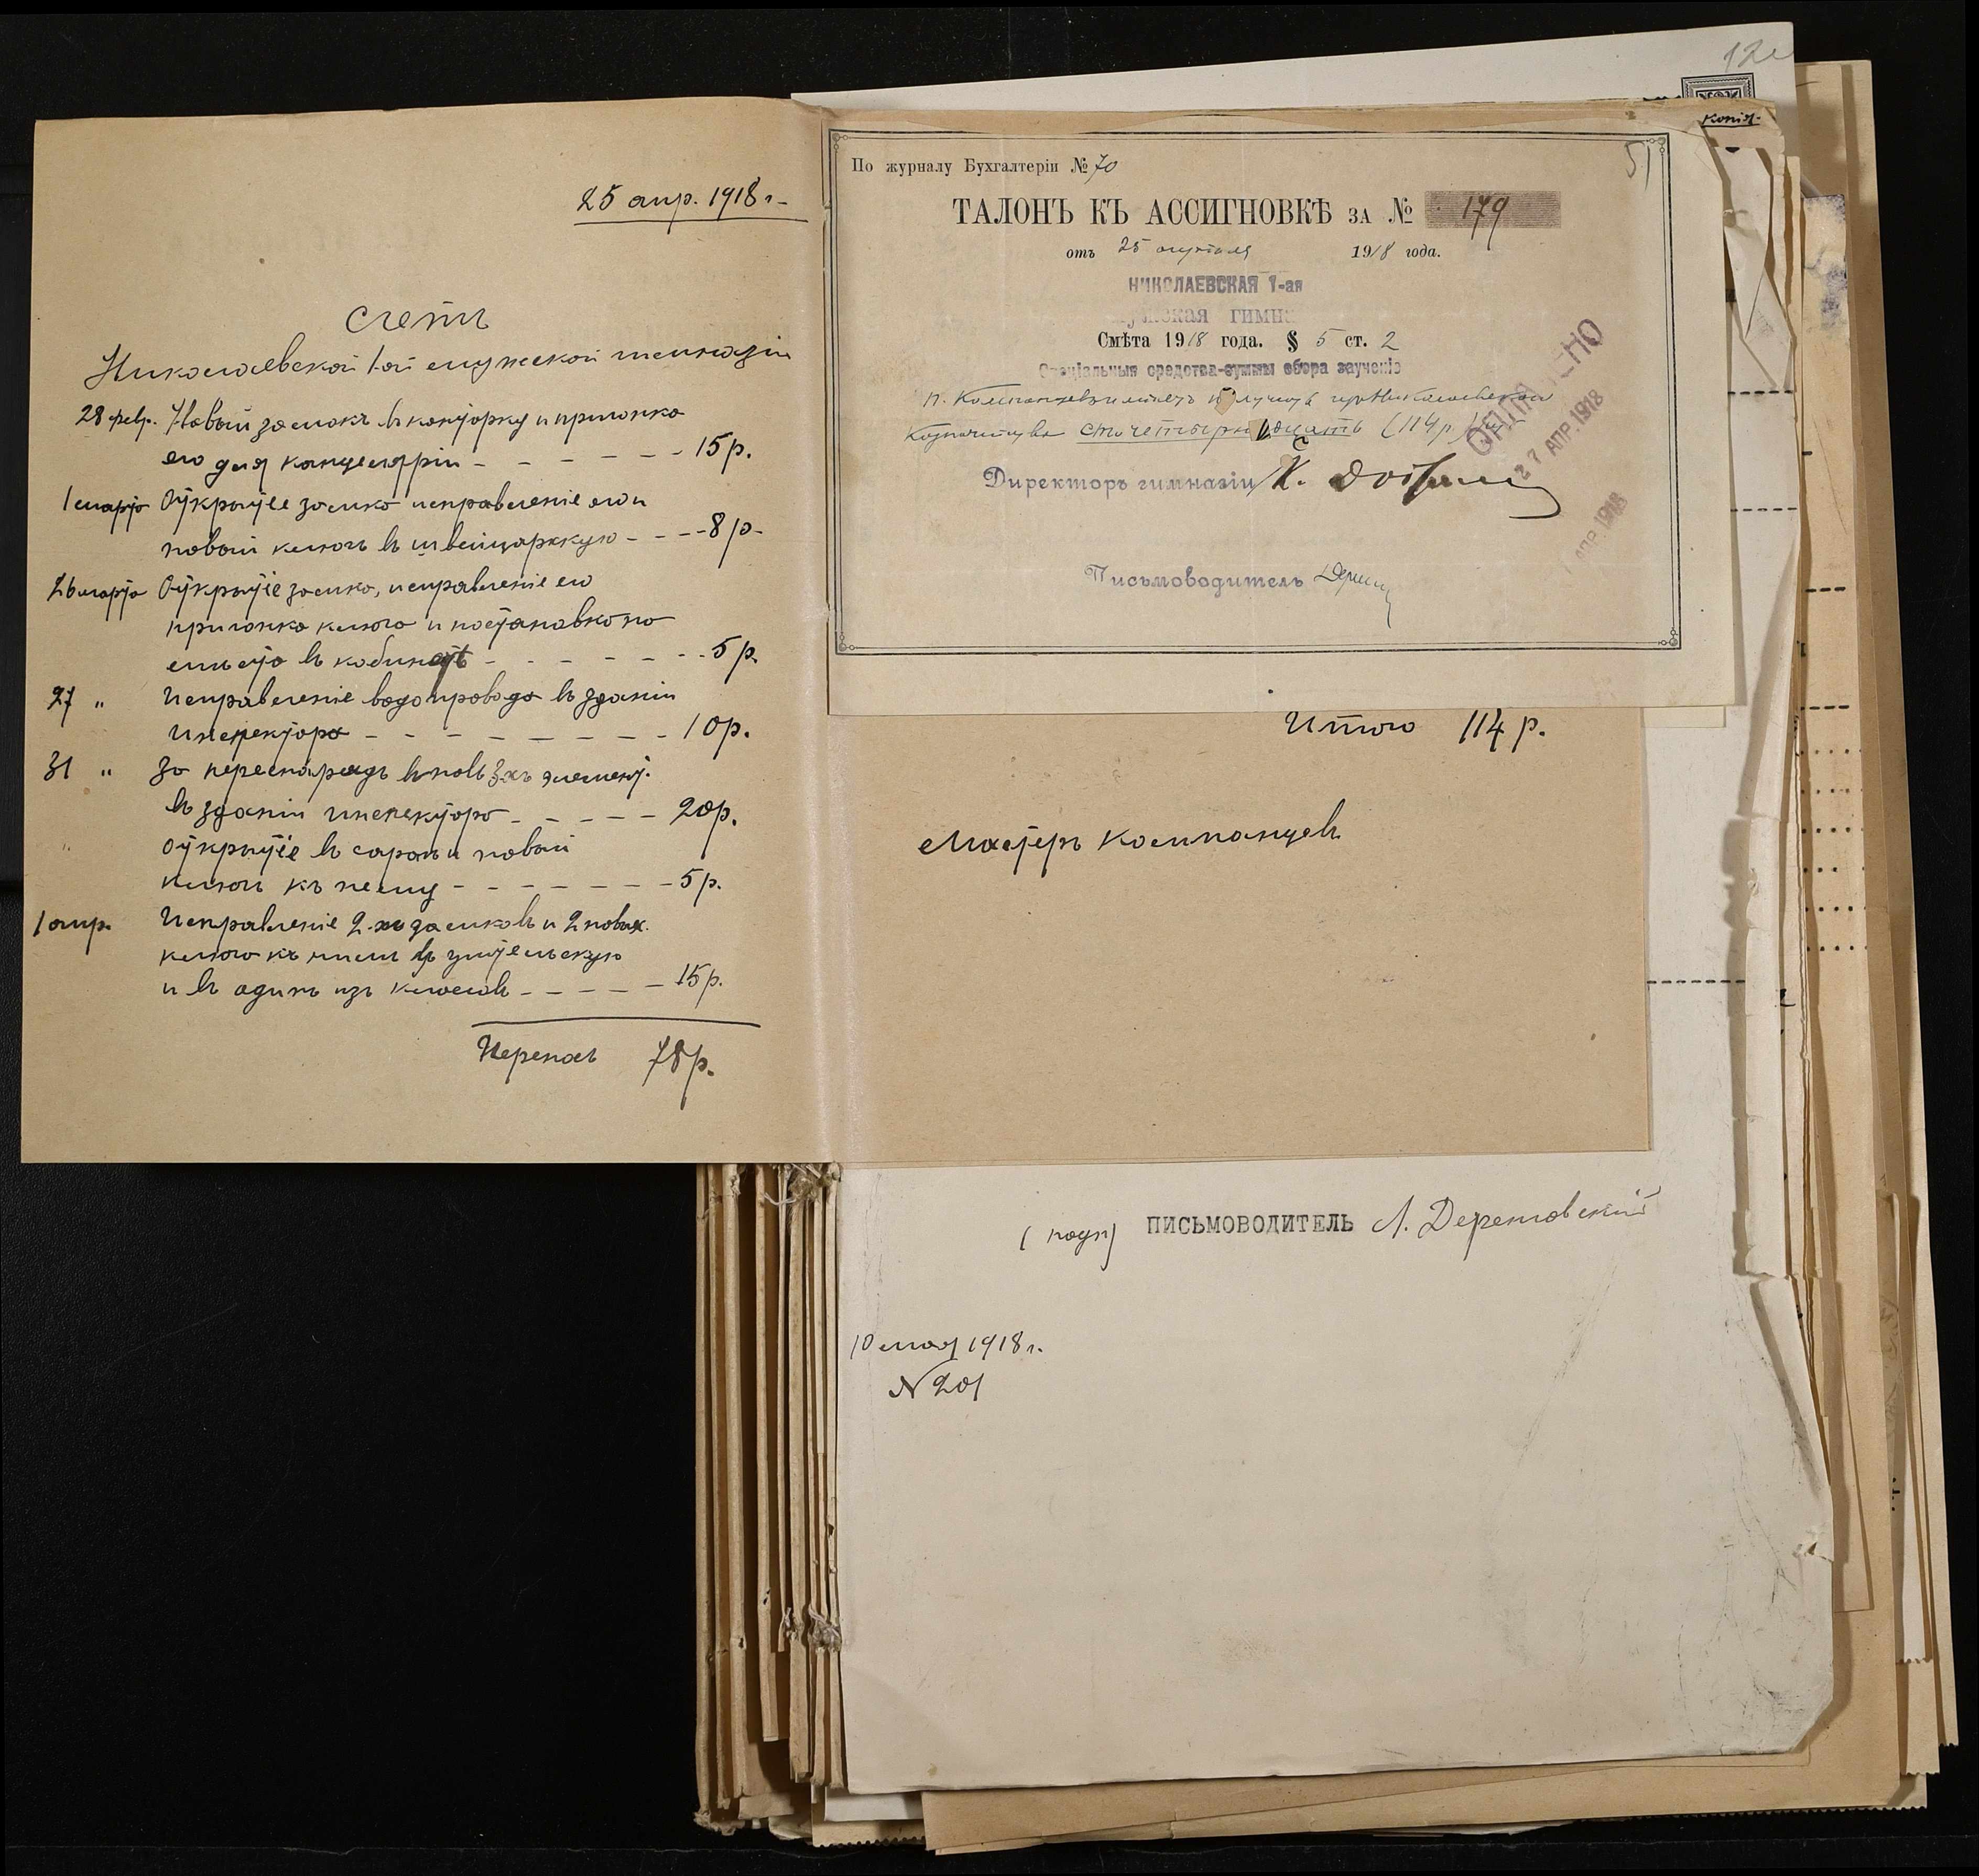 25 апр. 1918 г.
Счетъ
Николаевской 1-ой мужской гимназіи
28 февр. Новый замокъ въ конторку и пригонка
его для канцеляріи - - - - - - 15 р.
1 марта Открытіе замка исправленіе его и
новый ключъ въ швейцарскую - - - - 8 р.
26 марта Открытіе замка, исправленіе его
пригонка ключа и постановка на
мѣсто въ кабинетъ - - - - - - 5 р.
27 " Исправленіе водопровода въ зданіи
инспектора - - - - - - - - 10 р.
31 " За переснарядъ вновь 3-хъ элемент.
въ зданіи инспектора - - - - - 20 р.
Открытіе въ сараѣ и новый
ключъ къ нему - - - - - - - 5 р.
1 апр. Исправленіе 2-хъ замковъ и 2 новых.
ключа къ нимъ въ учительскую
и въ одинъ изъ классовъ - - - - - 15 р.
Переносъ 78 р.
12
Копія.
51
По журналу Бухгалтеріи № 70
ТАЛОНЪ КЪ АССИГНОВКѢ ЗА № 179
отъ 25 апрѣля 1918 года.
НИКОЛАЕВСКАЯ 1-ая
мужская гимн
Смѣта 1918 года. § 5 ст. 2
Спеціальныя средства-суммы сбора за ученіе
г. Компанцевъ имѣетъ получить изъ Николаевскаго
Казначейства сто четырнадцать (114 р.)
ОПЛАЧЕНО
27 АПР. 1918
АПР. 1918
Директоръ гимназіи К.
Письмоводитель
Итого 114 р.
Мастеръ Компанцевъ
(подп) ПИСЬМОВОДИТЕЛЬ Л. Деренговскій
10 мая 1918 г.
N 201